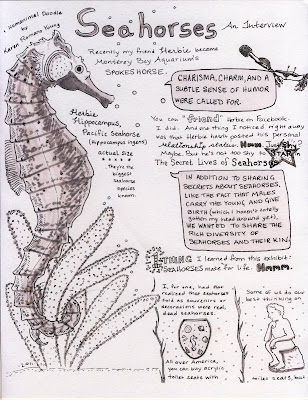 Humanimal Doodle
by
Karen Romano Young
Seahorses
An Interview
Recently my friend Herbie became
Monterey Bay Aquarium's
SPOKESHORSE.
CHARISMA, CHARM, AND A
SUBTLE SENSE OF HUMOR
WERE CALLED FOR.
Herbie
Hippocampus,
Pacific Seahorse
(hippocampus ingens)
Actual Size
They're the
biggest
Seahorse
Species
known.
You can "friend" Herbie on Facebook.
I did. And one thing I noticed right away
was that Herbie hasn't posted his personal
relationship status. Hmm.
Maybe. But he's not too shy to
The Secret Lives of Seahorses
IN ADDITION TO SHARING
SECRETS ABOUT SEAHORSES,
LIKE THE FACT THAT MALES
CARRY THE YOUNG AND GIVE
BIRTH (which I haven't totally
gotten my head around yet),
WE WANTED TO SHARE THE
RICH DIVERSITY OF
SEAHORSES AND THEIR KIN.
1 THING I learned from this exhibit:
SEAHORSES mate for life. Hmmm.
I, for one, had not
realized that seahorses
sold as souvenirs or
decorations were real,
dead seahorses.
All over America,
you can buy acrylic
toilet seats with
Some of us do our
best thinking on
toilet seats, but